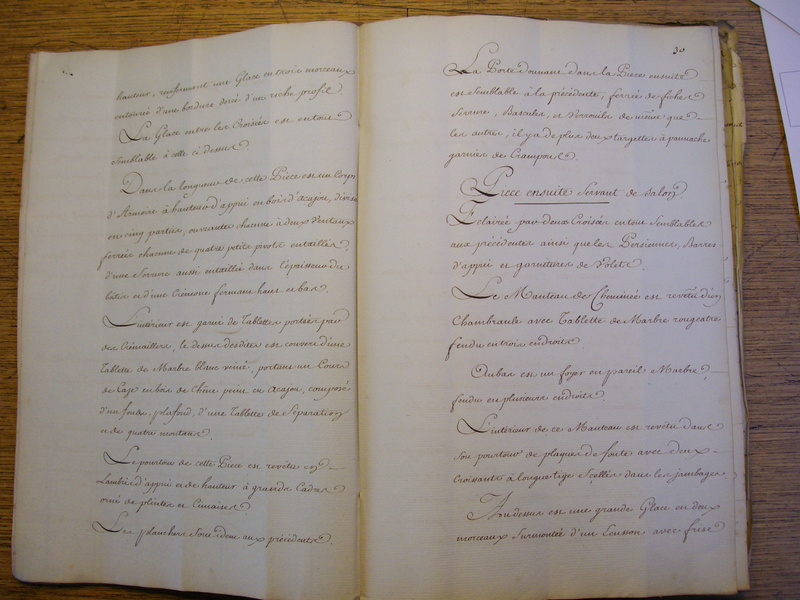 hauteur, renfermant une Glace en trois morceaux
entourée d'une bordure doré d'un riche profil
La Glace entre les Croisées est en tout
semblable à celle ci dessus.
Dans la longueur de cette Piece est un Corps
d'Armoire à hauteur d'appui en bois d'acajou, divisé
en cinq parties, ouvrante chacune à deux Ventaux
ferrés chacune de quatre petits pivots entaillés,
d'une Serrure aussi entaillée dans l'épaisseur du
batis et d'une Crémone fermant haut et bas.
L'intérieur est garni de Tablettes portées par
des Crémaillers, le dessus desdits est couvert d'une
Tablette de Marbre blanc veiné, portant un Cours
de Caze en bois de Chêne peint en Acajou, composé
d'un fond, plafond, d'une Tablette de Séparation
et de quatre montans.
Le pourtour de cette Piece est revêtu en
Lambris d'appui et de hauteur à grands Cadres
orné de plintes et Cimaises.
Les planchers Sont idem aux précédents.
30
La Porte donnant dans la Piece ensuite
est Semblable à la précédente, ferrée de fiches
Serrure, Bascules, et Verrouils de même que
les autres, il y a de plus deux targettes à pannache
garnies de Crampons.
Piece ensuite Servant de Salon
Eclairée par deux Croisées en tout Semblables
aux précédentes ainsi que les Persiennes, Barres
d'appui et garnitures de Volets.
Le Manteau de Cheminée est revêtu d'un
Chambranle avec Tablette de Marbre rougeatre
fendu en trois endroits.
Au bas est un foyer en pareil Marbre,
fendu en plusieurs endroits.
L'intérieur de ce Manteau est revêtu dans
Son pourtour de plaques de fonte avec deux
Croissants à longue tige Scellés dans les jambages
Au dessus est une grande Glace en deux
morceaux Surmontée d'un Ecusson avec frise